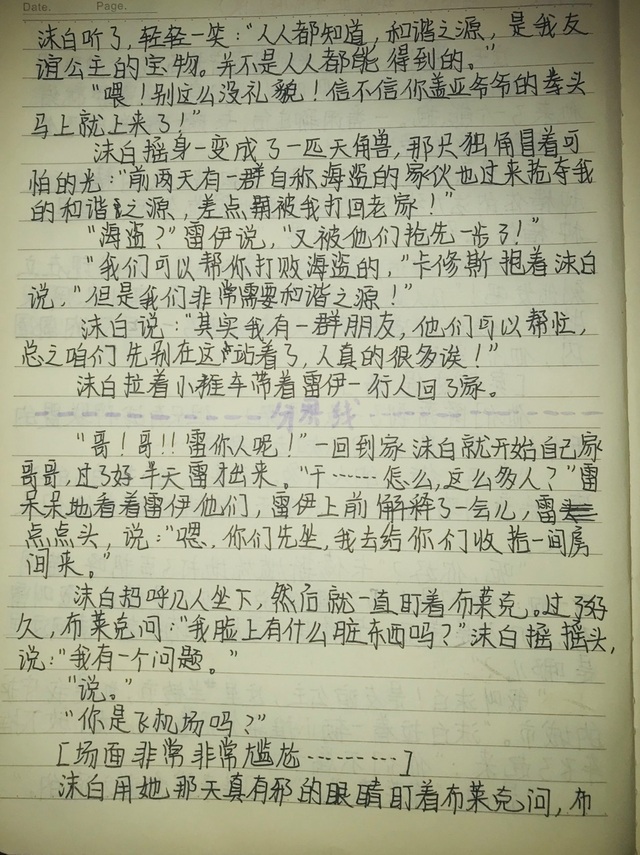 Date.
Page.
沫白听了，轻轻一笑：“人人都知道，和谐之源，是我友
谊公主的宝物。并不是人人都能得到的。”
“喂！别这么没礼貌！信不信你盖亚爷爷的拳头
马上就上来了！”
沫白摇身一变成了一匹天角兽，那只独角冒着可
怕的光：“前两天有一群自称海盗的家伙也过来抢夺我
的和谐之源，差点被我打回老家！”
“海盗？”雷伊说，“又被他们抢先一步了！”
“我们可以帮你打败海盗的，”卡修斯抱着沫白
说，“但是我们非常需要和谐之源！”
沫白说：“其实我有一群朋友，他们可以帮忙，
总之咱们先别在这站着了，人真的很多诶！”
沫白拉着小推车带着雷伊一行人回了家。
分界线
“哥！哥！！雷你人呢！”一回到家沫白就开始自己家
哥哥，过了好半天雷才出来。“干……怎么，这么多人？”雷
呆呆地看着雷伊他们，雷伊上前解释了一会儿，雷
点点头，说：“嗯，你们先坐，我去给你们收拾一间房
间来。”
沫白招呼几人坐下，然后就一直盯着布莱克。过了好
久，布莱克问：“我脸上有什么脏东西吗？”沫白摇摇头，
说：“我有一个问题。”
“说。”
“你是飞机场吗？”
[场面非常非常尴尬………]
沫白用她那天真有邪的眼睛盯着布莱克问，布